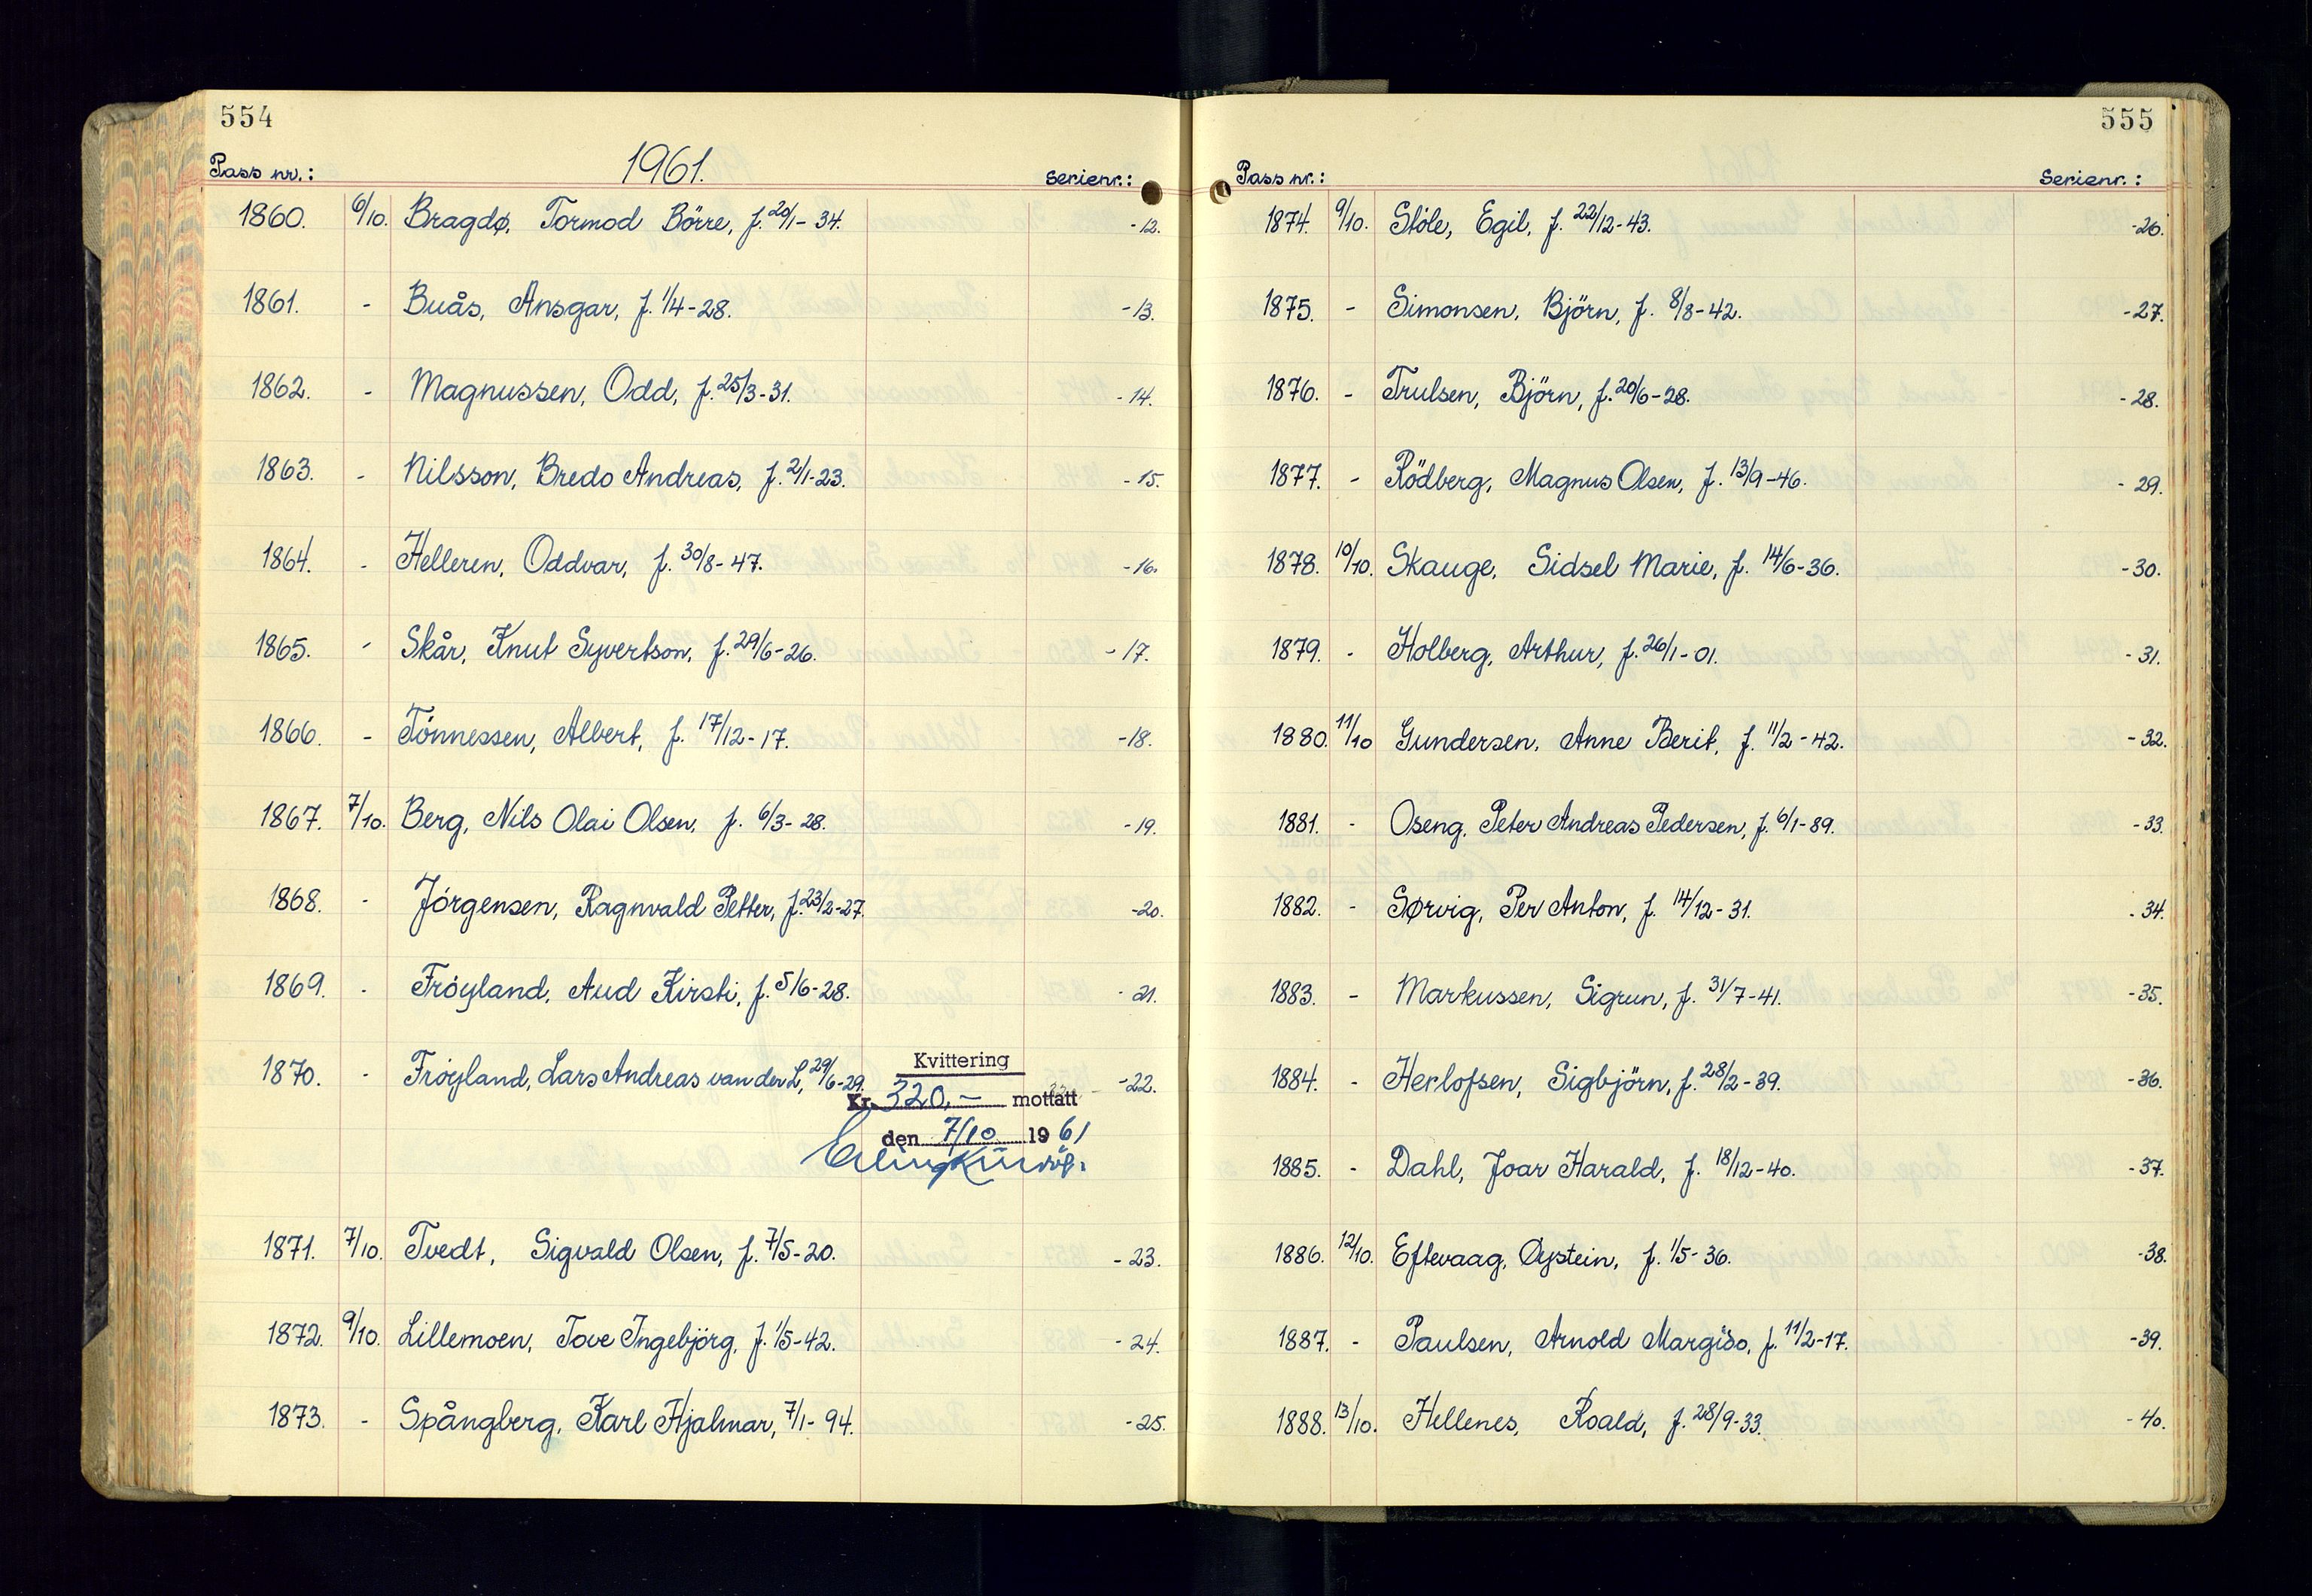 554
1961.
Pass nr.: serienr.:
1860. 6/10. Bragdø, Tormod Börre, f. 20/1-34. -12.
1861. - Buås, Ansgar, f. 1/4-28. -13.
1862. - Magnussen, Odd, f. 25/3-31. -14.
1863. - Nilsson, Bredo Andreas, f. 2/1-23. -15.
1864. - Helleren, Oddvar, f. 30/8-47. -16.
1865. - Skår, Knut Syvertson, f. 29/6-26. -17.
1866. - Tönnessen, Albert, f. 17/12-17. -18.
1867. 7/10. Berg, Nils Olai Olsen, f. 6/3-28. -19.
1868. - Jörgensen, Ragnvald Petter, f. 23/2-27. -20.
1869. - Fröyland, Aud Kirsti, f. 5/6-28. -21.
1870. - Fröyland, Lars Andreas van der L, 29/6-29. -22.
Kvittering
Kr. 320,- mottatt
den 7/10 1961
1871. 7/10. Tvedt, Sigvald Olsen, f. 7/5-20. -23.
1872. 9/10. Lillemoen, Tove Ingebjörg, f. 1/5-42. -24.
1873. - Spångberg, Karl Hjalmar, 7/1-94. -25.
555
Pass nr.: Serienr.:
1874. 9/10. Stöle, Egil, f. 22/12-43. -26.
1875. - Simonsen, Björn, f. 8/8-42. -27.
1876. - Trulsen, Björn, f. 20/6-28. -28.
1877. - Rödberg, Magnus Olsen, f. 13/9-46. -29.
1878. 10/10. Skauge, Sidsel Marie, f. 14/6-36. -30.
1879. - Holberg, Arthur, f. 26/1-01. -31.
1880. 11/10 Gundersen, Anne Berit, f. 11/2-42. -32.
1881. - Oseng, Peter Andreas Pedersen, f. 6/1-89. -33.
1882. - Sørvig, Per Anton, f. 14/12-31. -34.
1883. - Markussen, Sigrun, f. 31/7-41. -35.
1884. - Herlofsen, Sigbjörn, f. 28/2-39. -36.
1885. - Dahl, Joar Harald, f. 18/12-40. -37.
1886. 12/10. Eftevaag, Øystein, f. 1/5-36. -38.
1887. - Paulsen, Arnold Margido, f. 11/2-17. -39.
1888. 13/10. Hellenes, Roald, f. 28/9-33. -40.